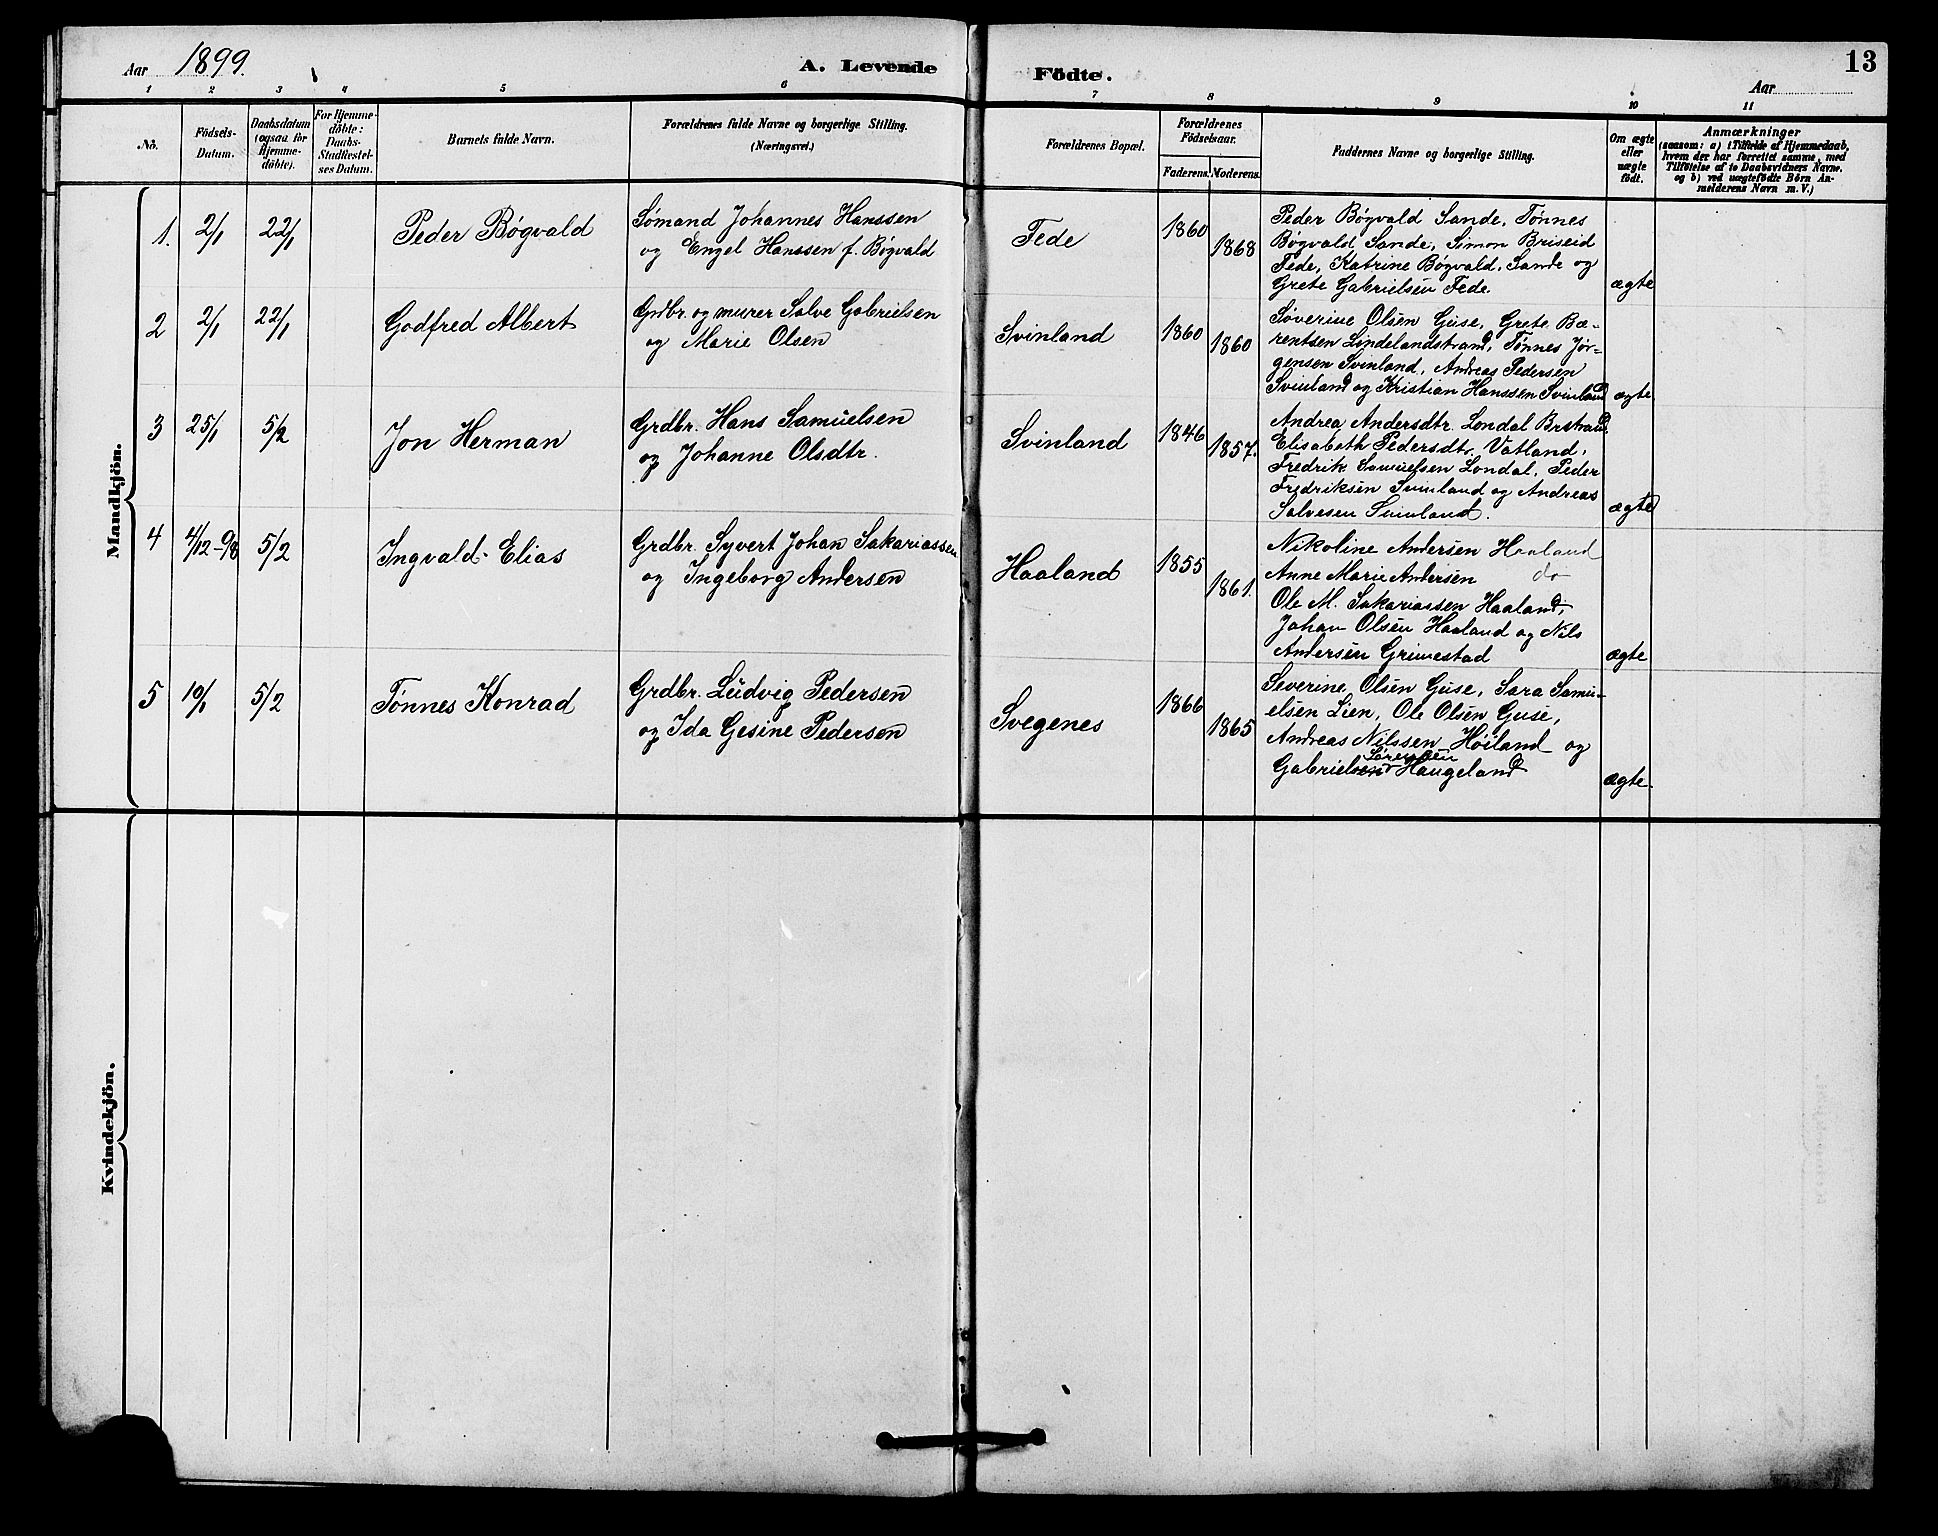 Aar 1899. A. Levende Födte. 13
Aar
1 2 3 4 5 6 7 8 9 10 11
No.
Födsels-
Datum.
Daabsdatum
(ogsaa for
Hjemme-
döbte).
For Hjemme-
döbte:
Daabs-
Stadfæstel-
ses Datum.
Barnets fulde Navn.
Forældrenes fulde Navne og borgerlige Stilling.
(Næringsvei.)
Forældrenes Bopæl.
Forældrenes
Födselsaar.
Faderens. Moderens.
Faddernes Navne og borgerlige Stilling.
Om ægte
eller
uægte
födt.
Anmærkninger
(saasom: a) i Tilfælde af Hjemmedaab,
hvem der har forrettet samme, med
Tilföielse af to Daabsvidners Navne,
og b) ved uægtefödte Börn An-
melderens Navn m. V.)
Mandkjön.
1. 2/1 22/1 Peder Bøgvald
Sømand Johannes Hanssen
og Engel Hanssen f. Bøgvald
Fede 1860 1868
Peder Bøgvald Sande, Tønnes
Bøgvald Sande, Simon Briseid
Fede, Katrine Bøgvald, Sande og
Grete Gabrielsen Fede.
ægte
2 2/1 22/1 Godfred Albert
Grdbr. og murer Salve Gabrielsen
og Marie Olsen
Svinland 1860 1860
Søverine Olsen Guse, Grete Bæ-
rentsen Lindelandstrand, Tønnes Jør-
gensen Svinland, Andreas Pedersen
Svinland og Kristian Hanssen Svinland
ægte
3 25/1 5/2 Jon Herman
Grdbr. Hans Samuelsen
og Johanne Olsdtr.
Svinland 1846 1857.
Andrea Andersdtr. Londal Brstrand.
Elisabeth Pedersdtr. Vatland,
Fredrik Samuelsen Londal, Peder
Fredriksen Svinland og Andreas
Salvesen Svinland.
ægte
4 4/12-98 5/2 Ingvald Elias
Grdbr. Syvert Johan Sakariassen
og Ingeborg Andersen
Haaland 1855 1861.
Nikoline Andersen Haaland
Anne Marie Andersen do
Ole M. Sakariassen Haaland,
Johan Olsen Haaland og Nils
Andersen Grimestad
ægte
5 10/1 5/2 Tønnes Konrad
Grdbr. Ludvig Pedersen
og Ida Gesine Pedersen
Svegenes 1866 1865
Severine Olsen Guse, Sara Samu-
elsen Lien, Ole Olsen Guse,
Andreas Nilssen Høiland og
Sørensen
Gabrielsen Haugeland
ægte.
Kvindekjön.